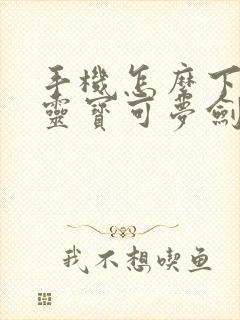 手機怎麼下
靈寶可夢劍
我不想喫鱼